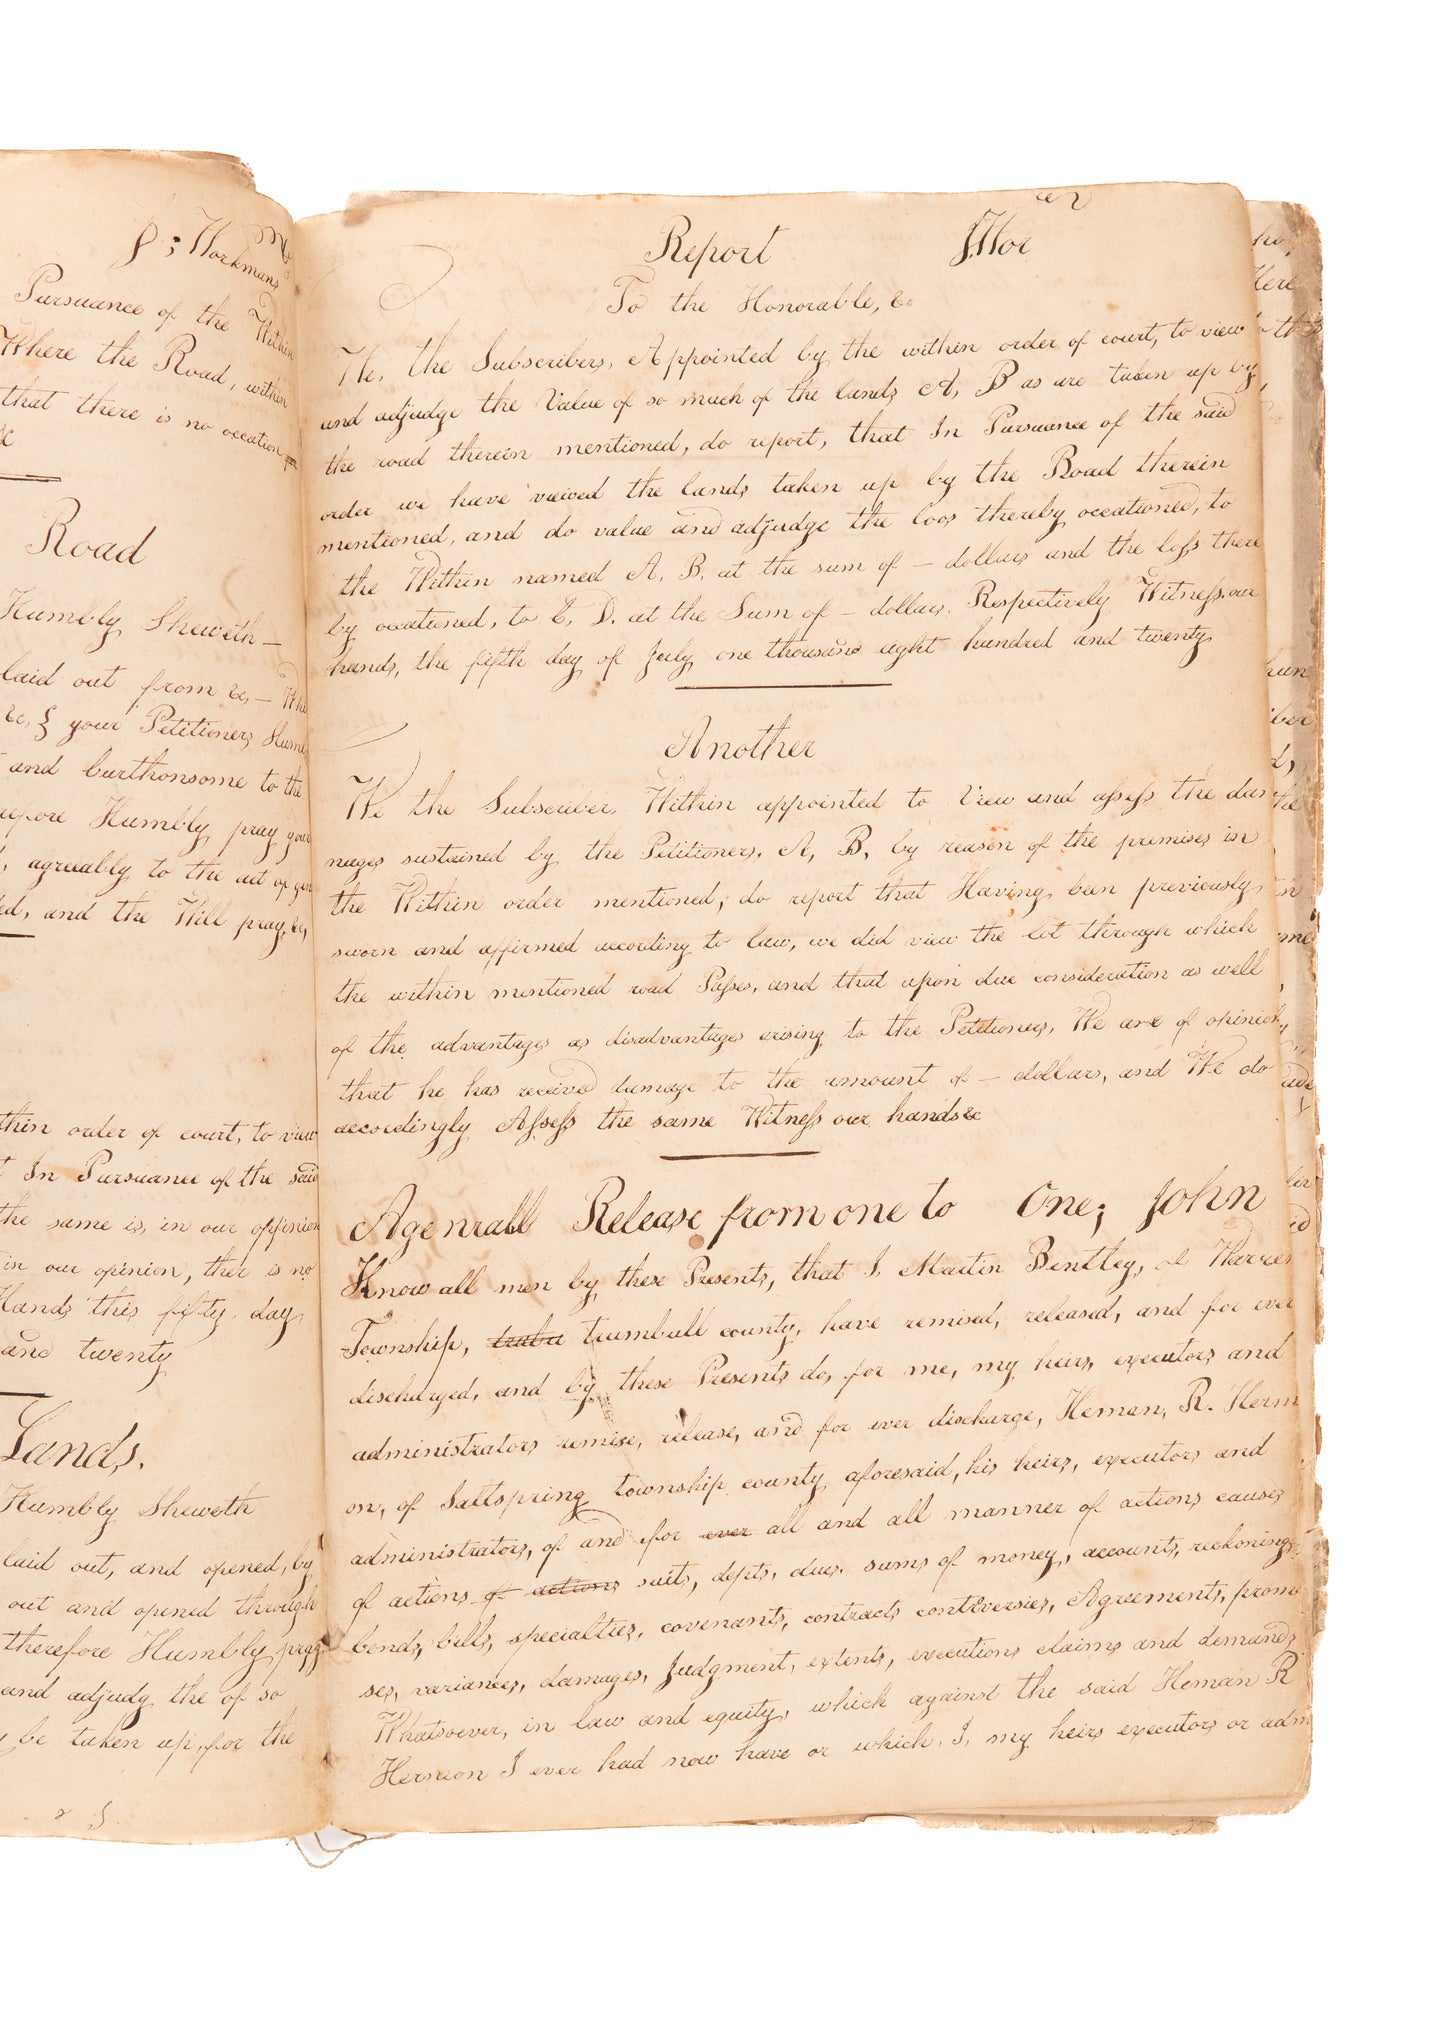 J; Workmans
Pursuance of the Within
Where the Road, within
that there is no occation
&c
Road
Humbly Sheweth —
laid out from &c, — The
&c, & your Petitioners Humb
and burthonsome to the
refore Humbly pray your
, agreeably to the act of gen
ed, and the Will pray, &c,
thin order of court, to view
t In Pursuance of the said
the same is, in our oppinion
in our opinion, ther is no
Hands this fifty day
and twenty
Lands.
Humbly Sheweth
laid out, and opened, by
out and opened through
therefore Humbly pray
and adjudg the of so
y be taken up, for the
Report J Wor
To the Honorable, &c
We, the Subscribers, Appointed by the within order of court, to view
and adjudge the Value of so much of the lands A, B as are taken up by
the road therein mentioned, do report, that In Pursuance of the said
order we have viewed the lands taken up by the Road therein
mentioned, and do value and adjudge the loos thereby occationed, to
the Within named A. B. at the sum of — dollars and the loss there
by occationed, to C, D. at the Sum of — dollars. Respectively Witness. our
hands, the fifth day of July one thousand eight hundred and twenty
Another
We the Subscriber, Within appointed to View and assess the dam
mages sustained by the Petitioners. A, B, by reason of the premises in
the Within order mentioned; do report that Having been previously
sworn and affirmed according to law, we did view the lot through which
the within mentioned road Passes, and that upon due consideration as well
of the advantages as disadvantages arising to the Petetioners, We are of opinion
that he has received damage to the amount of — dollars, and We do
accordingly Assess the same Witness our hands &c
Agenrall Release from one to One; John
Know all men by these Presents, that I, Martin Bentley, of Warren
Township, trubu trumbull county, have remised, released, and for ever
discharged, and by these Presents do, for me, my heirs, executors and
administrators remise, release, and for ever discharge, Heman, R. Herm
on, of Saltspring township county aforesaid, his heirs, executors and
administrators, of and for ever all and all manner of actions causes
of actions of actions suits, depts, dues. sums of money, accounts, reckonings
bonds, bills, specialties, covenants, contracts contriversies, Agreements, promi
ses, variances, damages, Judgment, extents, executions claims and demands
Whatsoever, in law and equity, which against the said Heman R
Hermon I ever had now have or which, I, my heirs executors or adm